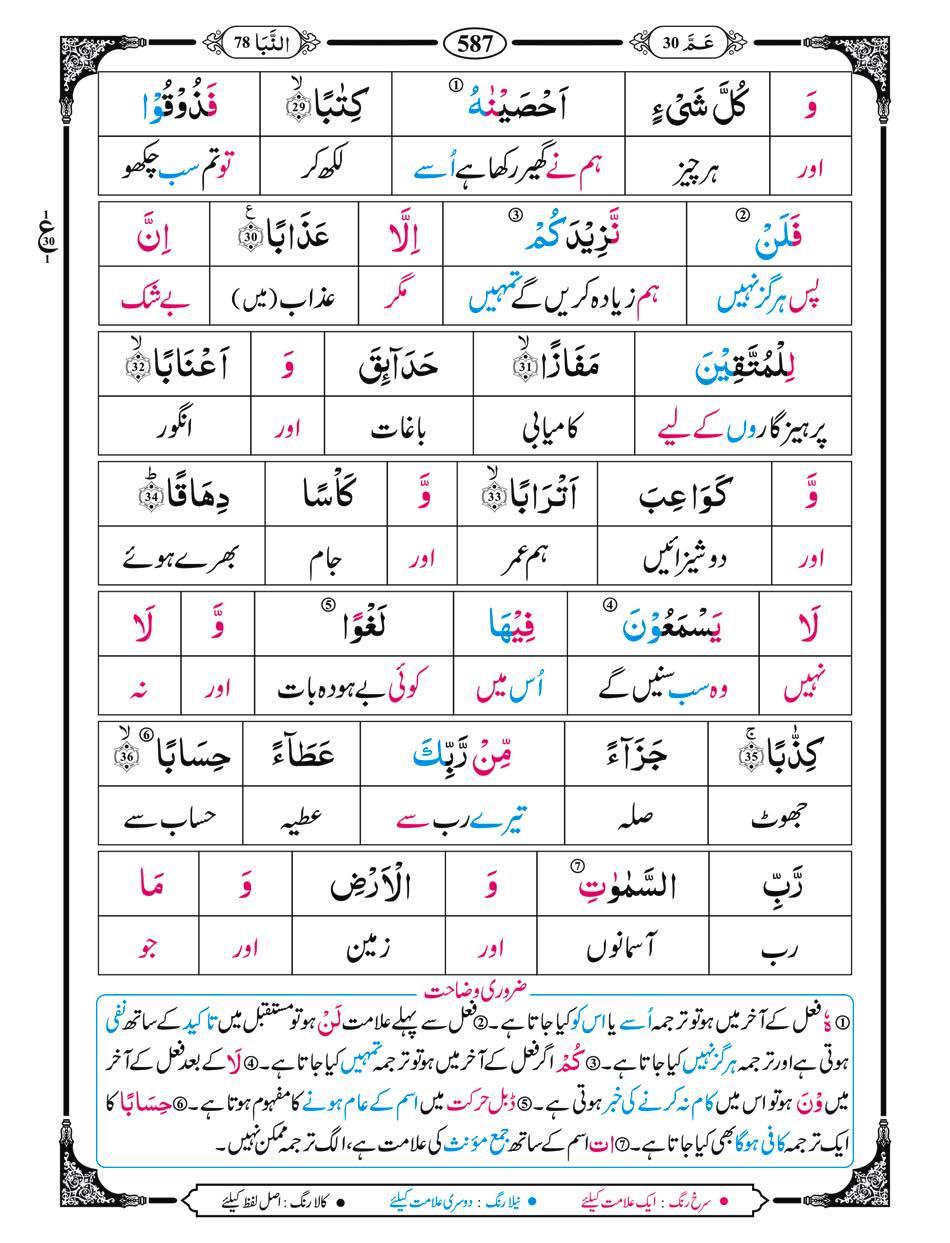 عَمَّ 30 587 النَّبَا 78
وَ كُلَّ شَیْءٍ اَحْصَیْنٰهُ ① كِتٰبًا ۙ 29 فَذُوْقُوْا
اور ہر چیز ہم نے گھیر رکھا ہے اُسے لکھ کر تو تم سب چکھو
فَلَنْ ② نَّزِیْدَكُمْ ③ اِلَّا عَذَابًا ۧ 30 اِنَّ
پس ہرگز نہیں ہم زیادہ کریں گے تمہیں مگر عذاب (میں) بے شک
1 ع 30 1
لِلْمُتَّقِیْنَ مَفَازًا ۙ 31 حَدَآىِٕقَ وَ اَعْنَابًا ۙ 32
پرہیزگاروں کے لیے کامیابی باغات اور انگور
وَّ كَوَاعِبَ اَتْرَابًا ۙ 33 وَّ كَاْسًا دِهَاقًا ؕ 34
اور دوشیزائیں ہم عمر اور جام بھرے ہوئے
لَا یَسْمَعُوْنَ ④ فِیْهَا لَغْوًا ⑤ وَّ لَا
نہیں وہ سب سنیں گے اُس میں کوئی بے ہودہ بات اور نہ
كِذّٰبًا ۚ 35 جَزَآءً مِّنْ رَّبِّكَ عَطَآءً حِسَابًا ⑥ ۙ 36
جھوٹ صلہ تیرے رب سے عطیہ حساب سے
رَّبِّ السَّمٰوٰتِ ⑦ وَ الْاَرْضِ وَ مَا
رب آسمانوں اور زمین اور جو
ضروری وضاحت
① ہٗ فعل کے آخر میں ہو تو ترجمہ اُسے یا اس کو کیا جاتا ہے۔ ② فعل سے پہلے علامت لَنْ ہو تو مستقبل میں تاکید کے ساتھ نفی
ہوتی ہے اور ترجمہ ہرگز نہیں کیا جاتا ہے۔ ③ كُمْ اگر فعل کے آخر میں ہو تو ترجمہ تمہیں کیا جاتا ہے۔ ④ لَا کے بعد فعل کے آخر
میں وْنَ ہو تو اس میں کام نہ کرنے کی خبر ہوتی ہے۔ ⑤ ڈبل حرکت میں اسم کے عام ہونے کا مفہوم ہوتا ہے۔ ⑥ حِسَابًا کا
ایک ترجمہ کافی ہوگا بھی کیا جاتا ہے۔ ⑦ ات اسم کے ساتھ جمع مؤنث کی علامت ہے، الگ ترجمہ ممکن نہیں۔
● سرخ رنگ : ایک علامت کیلئے ● نیلا رنگ : دوسری علامت کیلئے ● کالا رنگ : اصل لفظ کیلئے